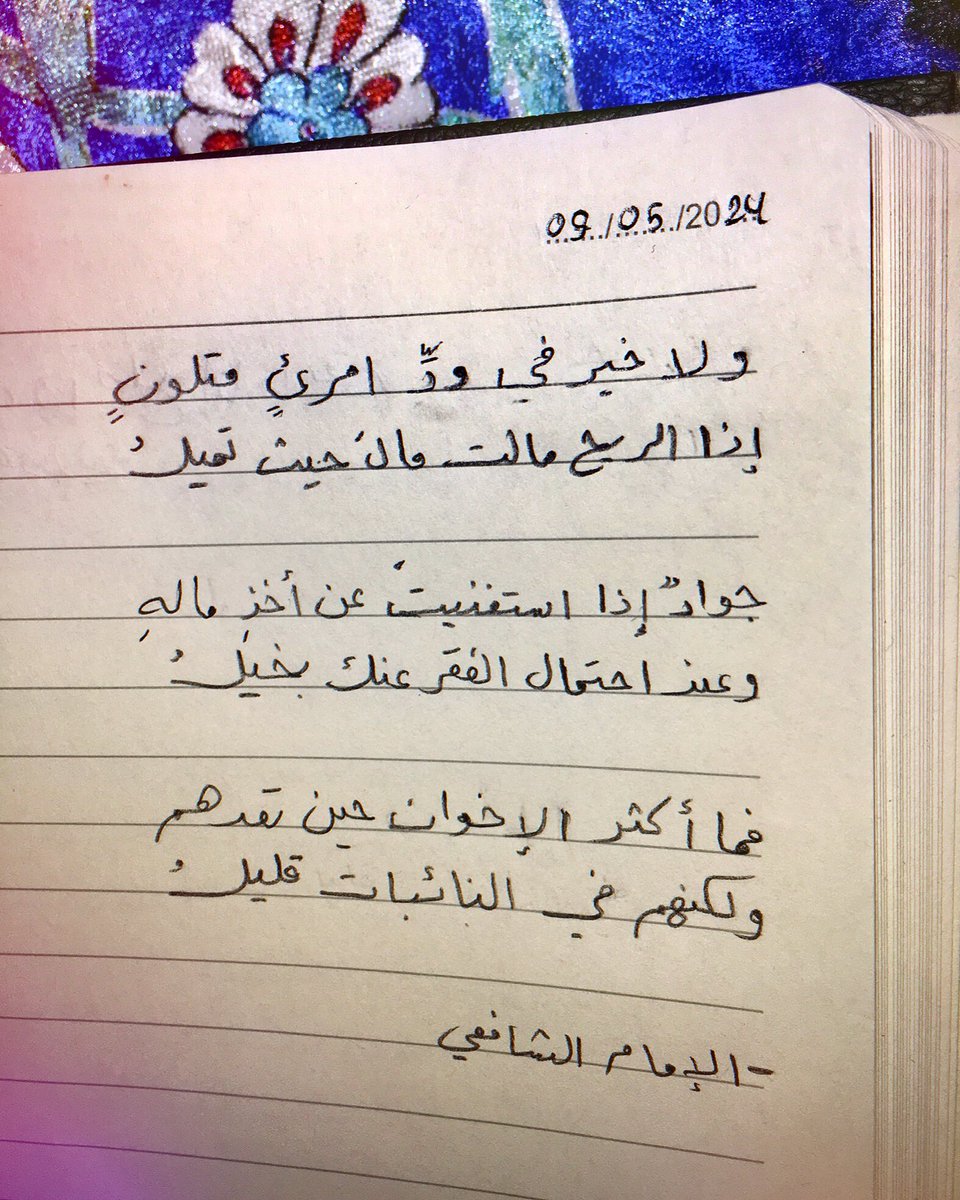 09/05/2024
ولا خير في ودِّ امرئٍ متلونٍ
إذا الريح مالت مالَ حيث تميلُ
جوادٌ إذا استغنيتَ عن أخذِ مالهِ
وعند احتمال الفقر عنك بخيلُ
فما أكثر الإخوان حين تعدهم
ولكنهم في النائبات قليلُ
- الإمام الشافعي